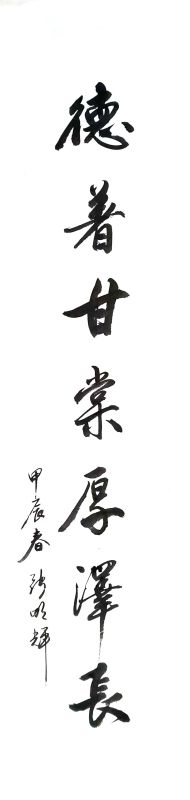 德著甘棠厚澤長
甲辰春 張明輝